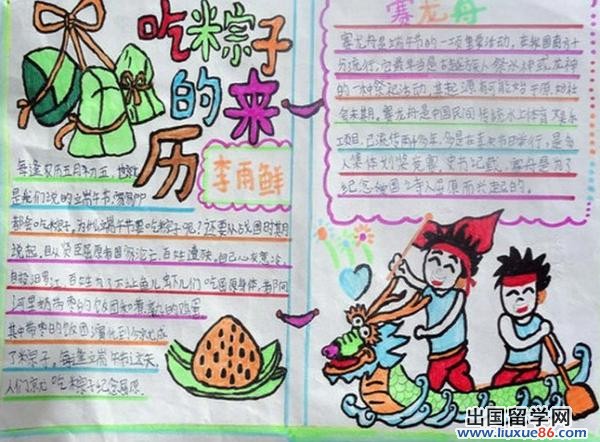 吃粽子
的来
历
李雨鲜
每逢农历五月初五，也就
是我们说的端午节，
都会吃粽子，为什么端午节要吃粽子呢？这要从战国时期
说起，自从贤臣屈原
自投汨罗江，百姓为了不让鱼儿虾儿们吃屈原身体，都向
河里扔带枣的饭团和煮熟的鸡蛋
其中带枣的饭团演化到今就成
了粽子，每逢端午节这天，
人们就吃粽子纪念屈原
赛龙舟
赛龙舟是端午节的一项重要活动，在我国南方十
分流行，它最早当是古越族人祭水神或龙神
的一种祭祀活动，其起源有可能始于原始社
会末期。赛龙舟是中国民间传统水上体育娱乐
项目，已流传两千多年，多是在喜庆节日举行，是多
人集体划桨竞赛。史书记载，赛舟是为了
纪念祖国诗人屈原而兴起的。
出国留学网
www.liuxue86.com